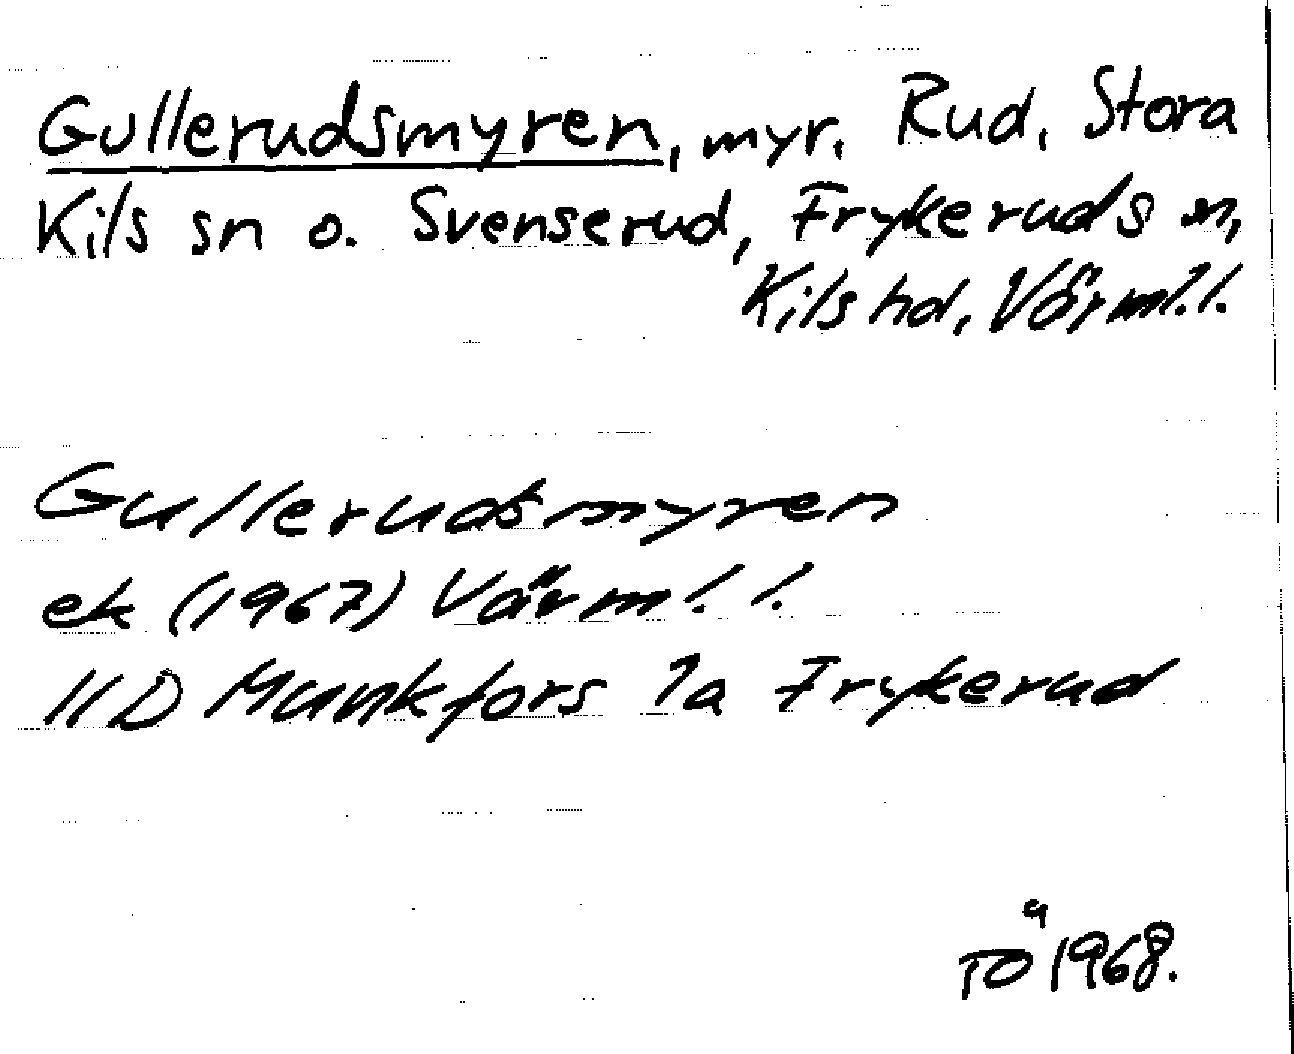 Gullerudsmyren, myr. Rud, Stora
Kils sn o. Svenserud, Frykeruds sn,
Kils hd, Värml.l.
Gullerudsmyren
ek (1967) Värml.l.
11D Munkfors 1a Frykerud
TÖ 1968.